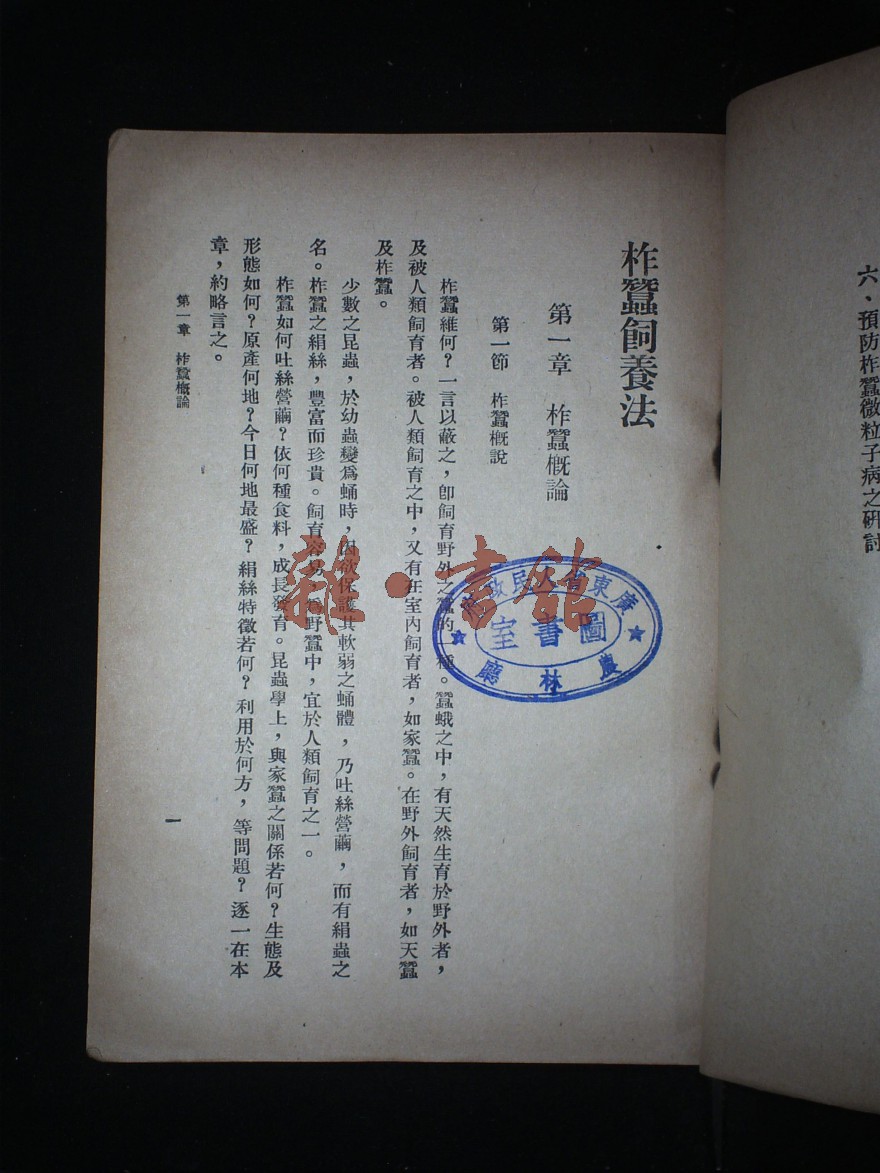 六、預防柞蠶微粒子病之研討
柞蠶飼養法
第一章　柞蠶概論
第一節　柞蠶概說
柞蠶維何？一言以蔽之，卽飼育野外之蠶的一種。蠶蛾之中，有天然生育於野外者，
及被人類飼育者。被人類飼育之中，又有在室內飼育者，如家蠶。在野外飼育者，如天蠶
及柞蠶。
少數之昆蟲，於幼蟲變爲蛹時，因欲保護其軟弱之蛹體，乃吐絲營繭，而有絹蟲之
名。柞蠶之絹絲，豐富而珍貴。飼育容易，爲野蠶中，宜於人類飼育之一。
柞蠶如何吐絲營繭？依何種食料，成長發育。昆蟲學上，與家蠶之關係若何？生態及
形態如何？原產何地？今日何地最盛？絹絲特徵若何？利用於何方，等問題？逐一在本
章，約略言之。
第一章　柞蠶概論
一
廣東省人民政府
圖書室
農林廳
雜·書館